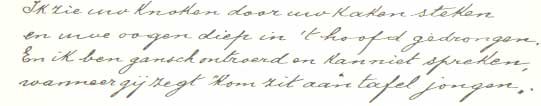 Ik zie uw knoken door uw kaken steken
en uwe oogen diep in 't hoofd gedrongen.
En ik ben gansch ontroerd en kan niet spreken,
wanneer gij zegt "kom zit aan tafel jongen".